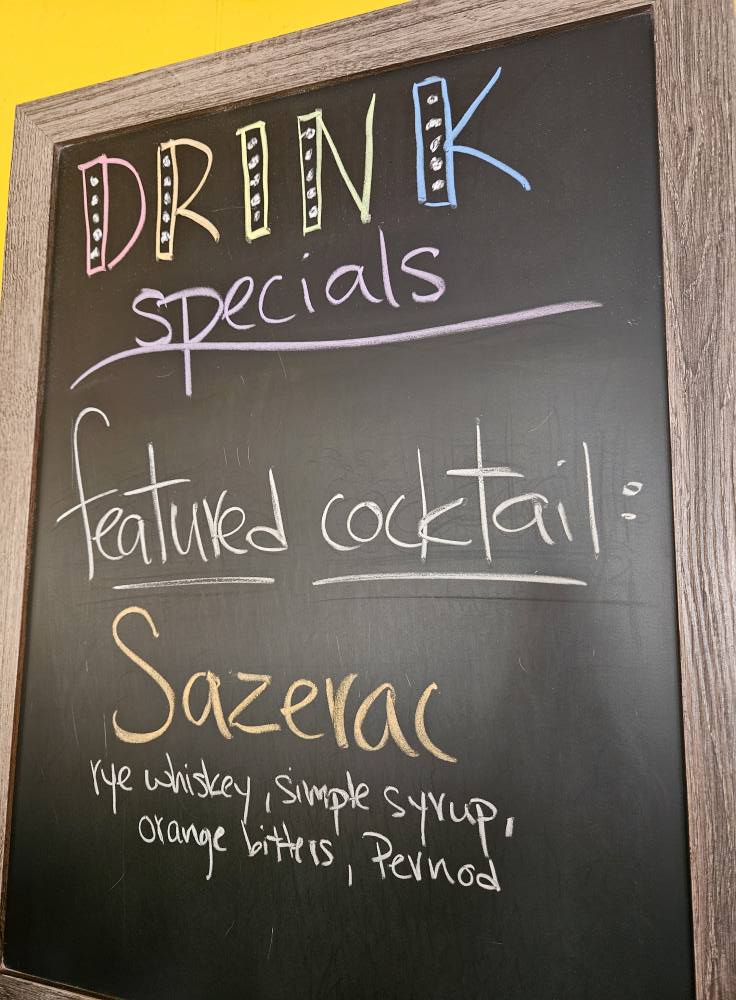 DRINK
specials
featured cocktail:
Sazerac
rye whiskey, simple syrup,
orange bitters, Pernod